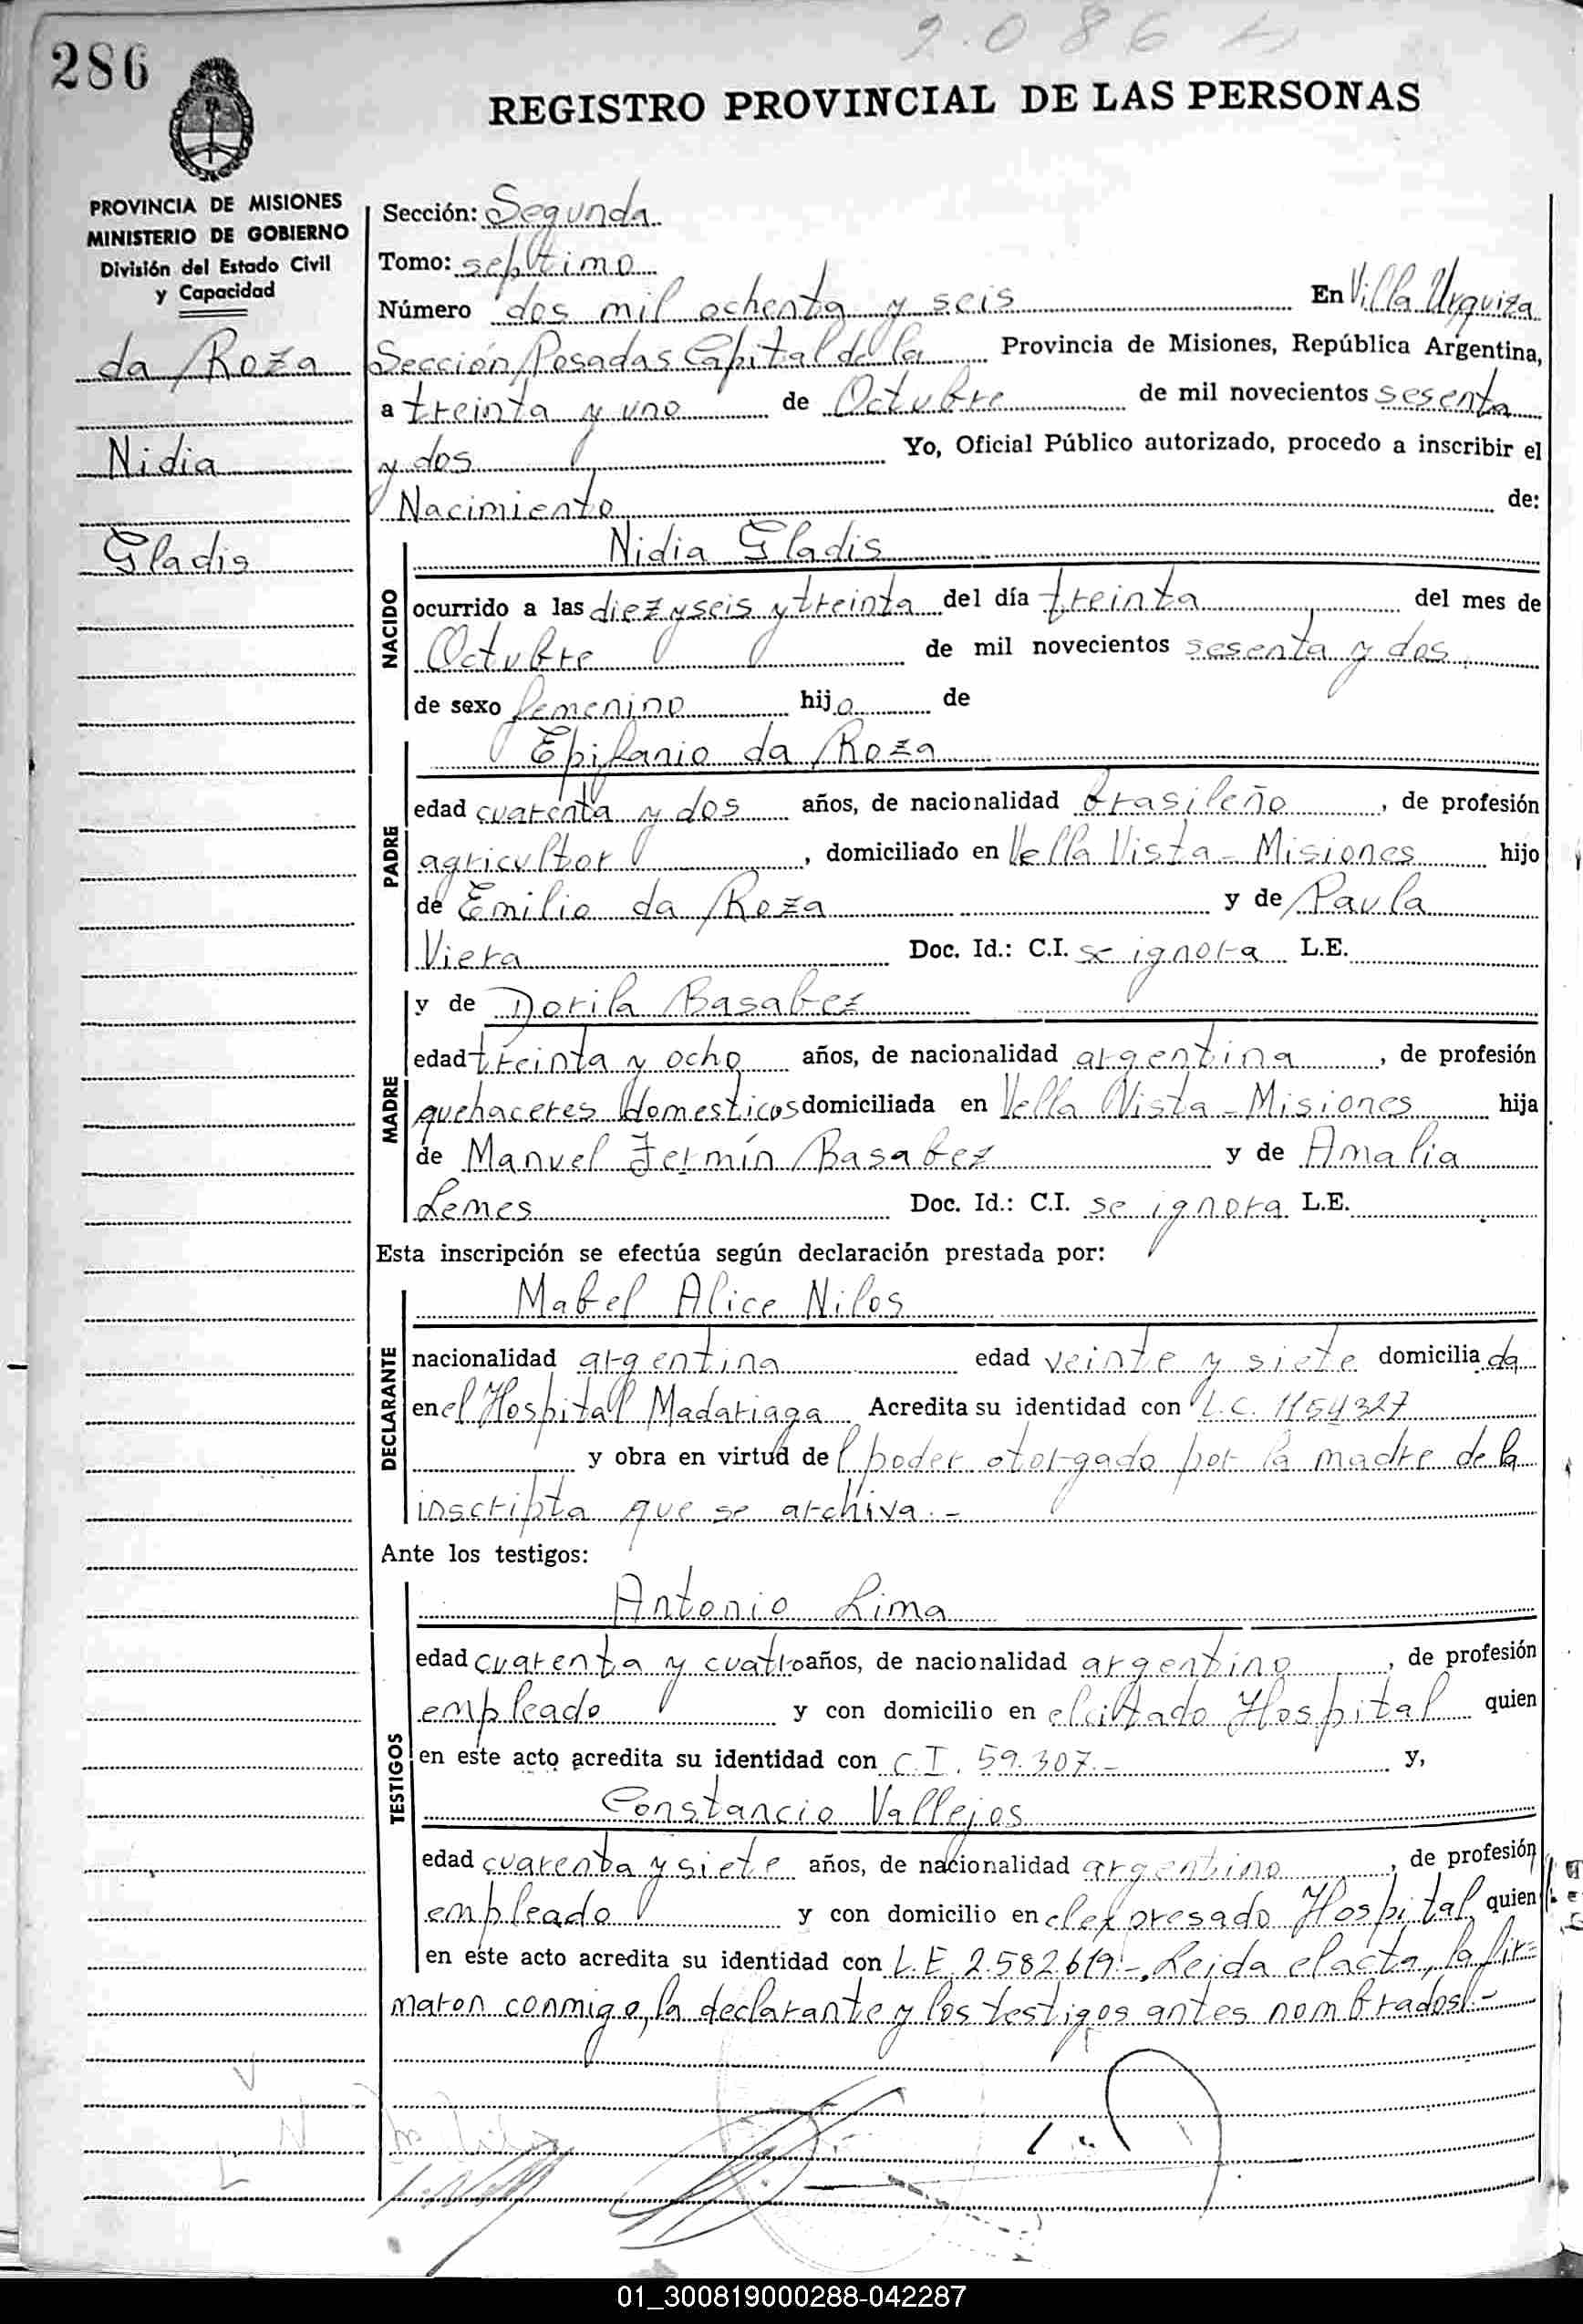 286
2.086
REGISTRO PROVINCIAL DE LAS PERSONAS
PROVINCIA DE MISIONES
MINISTERIO DE GOBIERNO
División del Estado Civil
y Capacidad
da Roza
Nidia
Gladis
Sección: Segunda
Tomo: septimo
Número dos mil ochenta y seis En Villa Urquiza
Sección Posadas Capital de la Provincia de Misiones, República Argentina,
a treinta y uno de Octubre de mil novecientos sesenta
y dos Yo, Oficial Público autorizado, procedo a inscribir el
Nacimiento de:
NACIDO
Nidia Gladis
ocurrido a las diez y seis y treinta del día treinta del mes de
Octubre de mil novecientos sesenta y dos
de sexo femenino hija de
PADRE
Epifanio da Roza
edad cuarenta y dos años, de nacionalidad brasileño, de profesión
agricultor, domiciliado en Vella Vista - Misiones hijo
de Emilio da Roza y de Paula
Viera Doc. Id.: C.I. se ignora L.E.
MADRE
y de Dorila Basabez
edad treinta y ocho años, de nacionalidad argentina, de profesión
quehaceres domesticos domiciliada en Vella Vista - Misiones hija
de Manuel Fermín Basabez y de Amalia
Lemes Doc. Id.: C.I. se ignora L.E.
Esta inscripción se efectúa según declaración prestada por:
DECLARANTE
Mabel Alice Nilos
nacionalidad argentina edad veinte y siete domiciliada
en el Hospital Madariaga Acredita su identidad con L.C. 1154327
y obra en virtud del poder otorgado por la madre de la
inscripta que se archiva.-
Ante los testigos:
TESTIGOS
Antonio Lima
edad cuarenta y cuatro años, de nacionalidad argentino, de profesión
empleado y con domicilio en el citado Hospital quien
en este acto acredita su identidad con C.I. 59.307.- y,
Constancio Vallejos
edad cuarenta y siete años, de nacionalidad argentino, de profesión
empleado y con domicilio en el expresado Hospital quien
en este acto acredita su identidad con L.E. 2.582.619.- Leida el acta, la fir=
maron conmigo, la declarante y los testigos antes nombrados.-
01_300819000288-042287